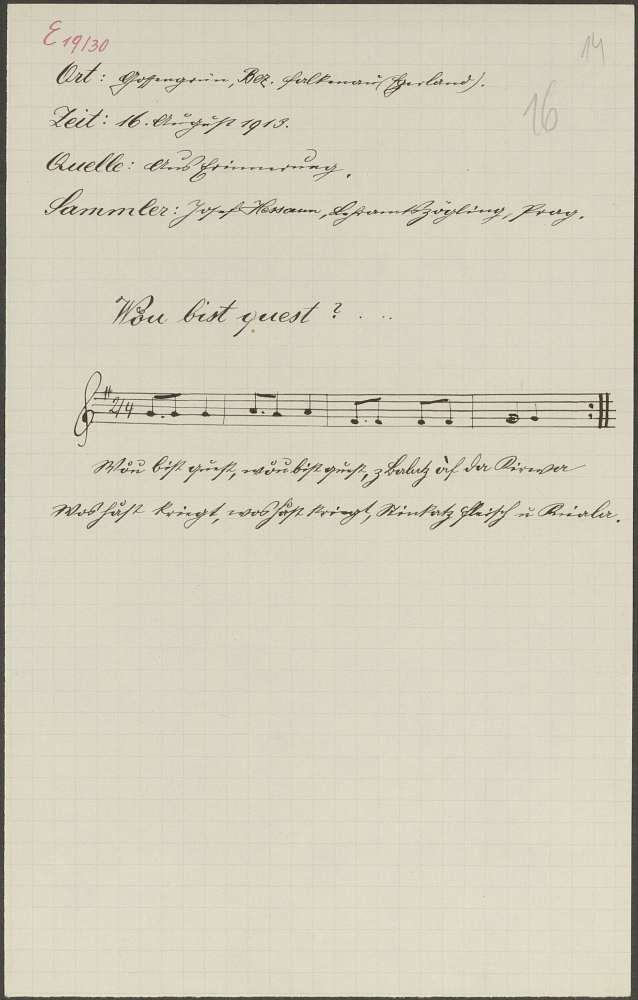 E 19/30
14
Ort: Gossengrün, Bez. Falkenau (Egerland).
16
Zeit: 16. August 1913.
Quelle: Aus Erinnerung.
Sammler: Josef Hossann, Lehramtszögling, Prag.
Wou bist quest? ...
2/4
Wòu bist quest, wòu bist quest, z Balatz àf da Kirwa
Wos håst kriegt, wos håst kriegt, Stinkatz Fleisch u